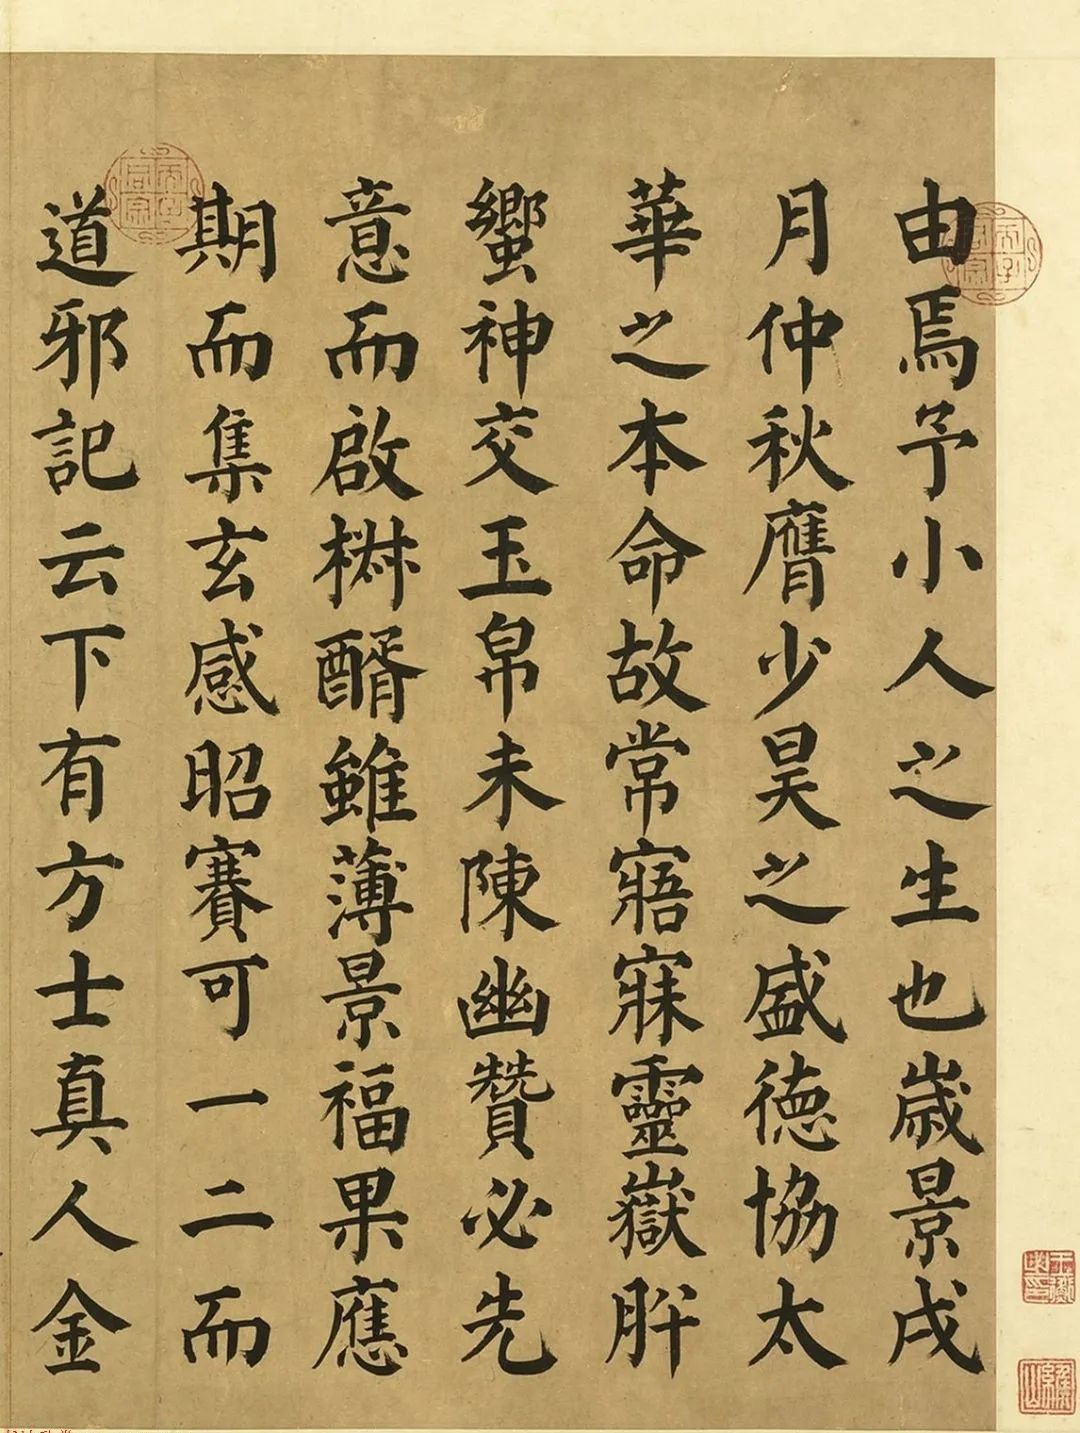 由焉予小人之生也歲景戌
月仲秋膺少昊之盛德協太
華之本命故常寤寐靈嶽肸
蠁神交玉帛未陳幽贊必先
意而啟椒醑雖薄景福果應
期而集玄感昭賽可一二而
道邪記云下有方士真人金